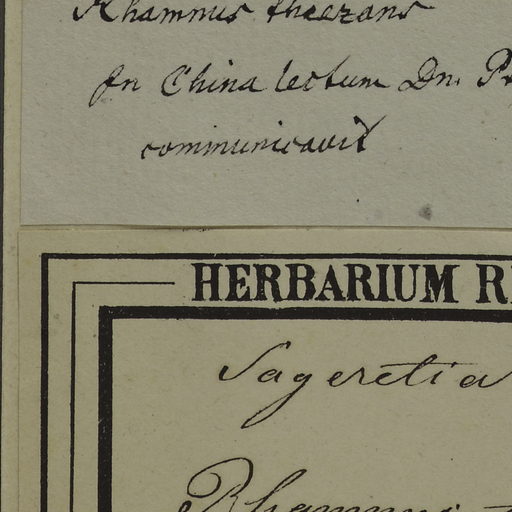 Rhamnus theezans
In China lectum Dn. P
communicavit
HERBARIUM R
Sageretia
Rhamnus